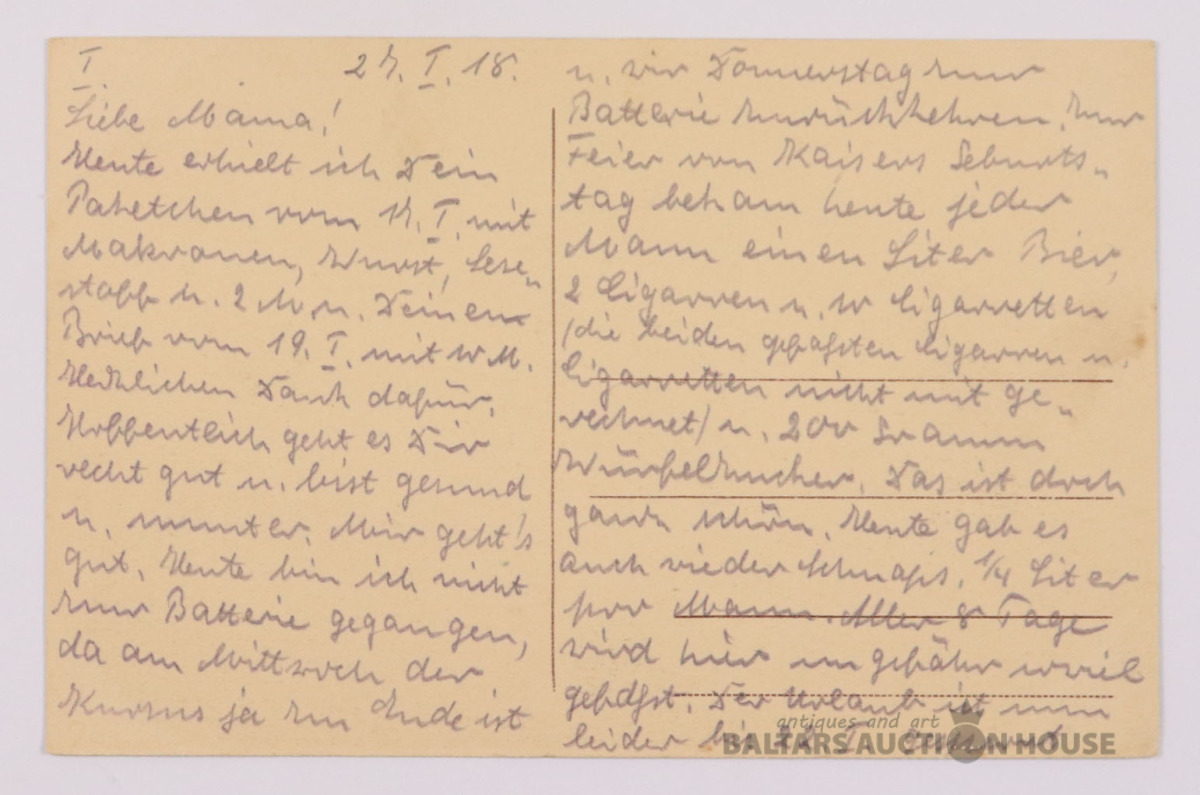 I.
27. I. 18.
Liebe Mama!
Heute erhielt ich Dein
Paketchen vom 17. I. mit
Makronen, Wurst, Lese„
stoff u. 2 M u. Deinen
Brief vom 19. I. mit 10 M.
Herzlichen Dank dafür.
Hoffentlich geht es Dir
recht gut u. bist gesund
u. munter. Mir geht's
gut. Heute bin ich nicht
zur Batterie gegangen,
da am Mittwoch der
Kursus ja zu Ende ist
u. wir Donnerstag zur
Batterie zurückkehren. Zur
Feier von Kaisers Geburts„
tag bekam heute jeder
Mann einen Liter Bier,
2 Cigarren u. 10 Cigarretten
(die beiden gefaßten Cigarren u.
Cigarretten nicht mit ge„
rechnet) u. 200 Gramm
Würfelzucker. Das ist doch
ganz schön. Heute gab es
auch wieder Schnaps. 1/4 Liter
pro Mann. Aller 8 Tage
wird hier ungefähr soviel
gefaßt. Der Urlaub ist nun
leider bis I.
antiques and art
BALTARS AUCTION HOUSE